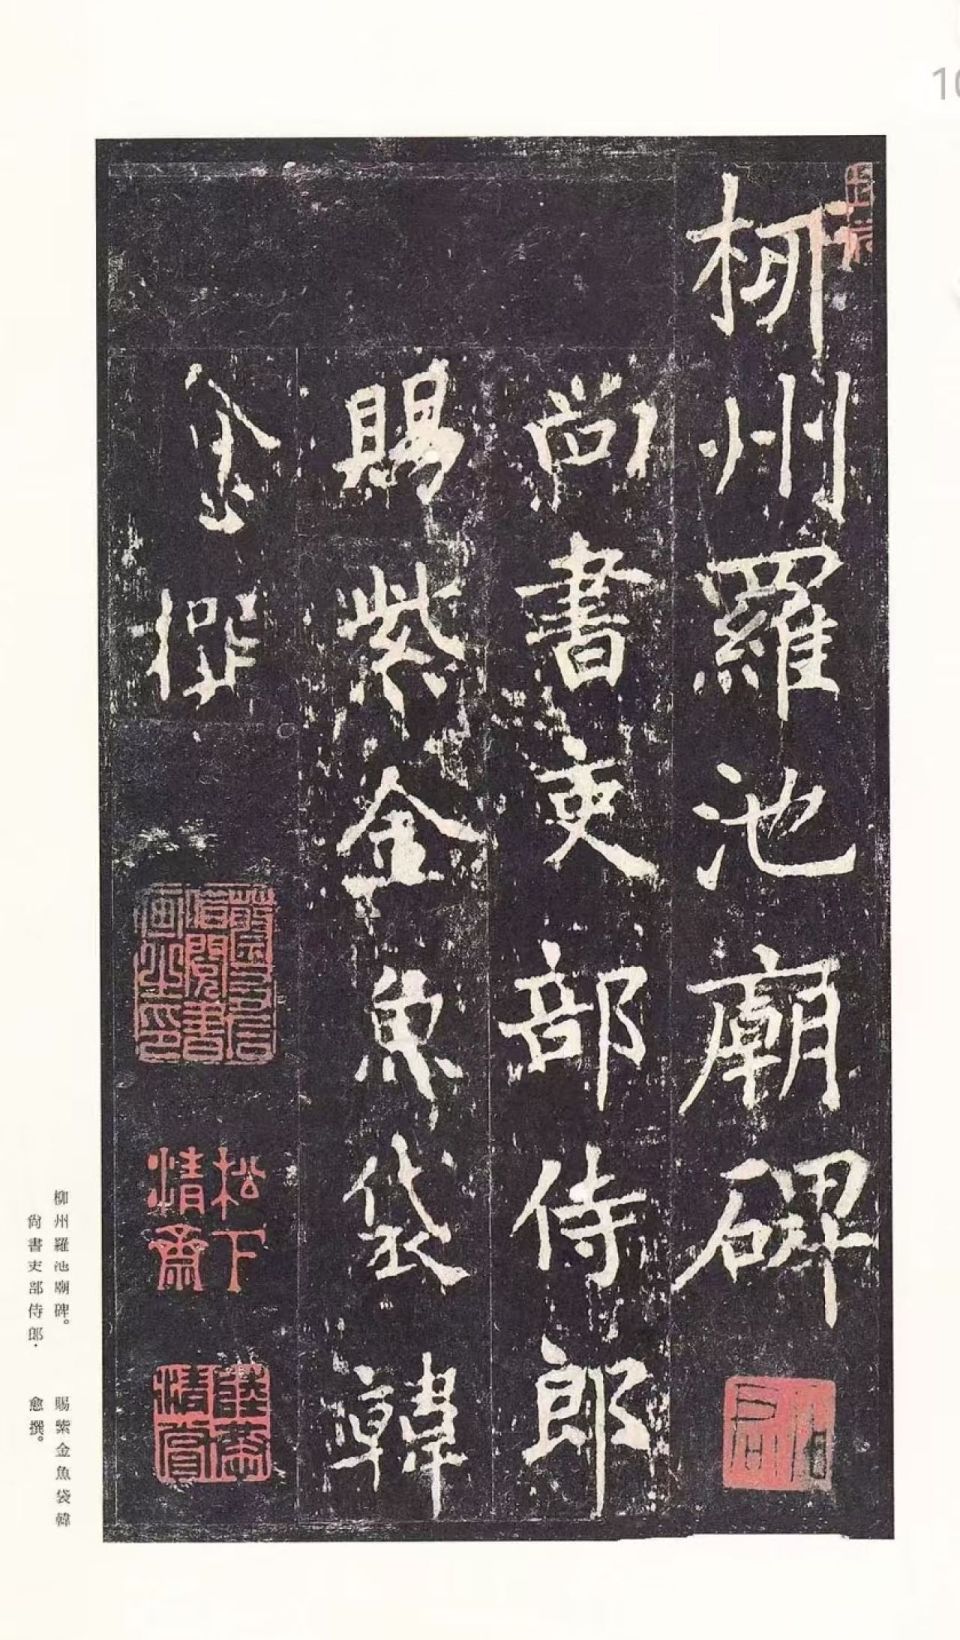 柳州羅池廟碑
尚書吏部侍郎
賜紫金魚袋韓
愈撰
松下
清齋
柳州羅池廟碑。 賜紫金魚袋韓
尙書吏部侍郎· 愈撰。